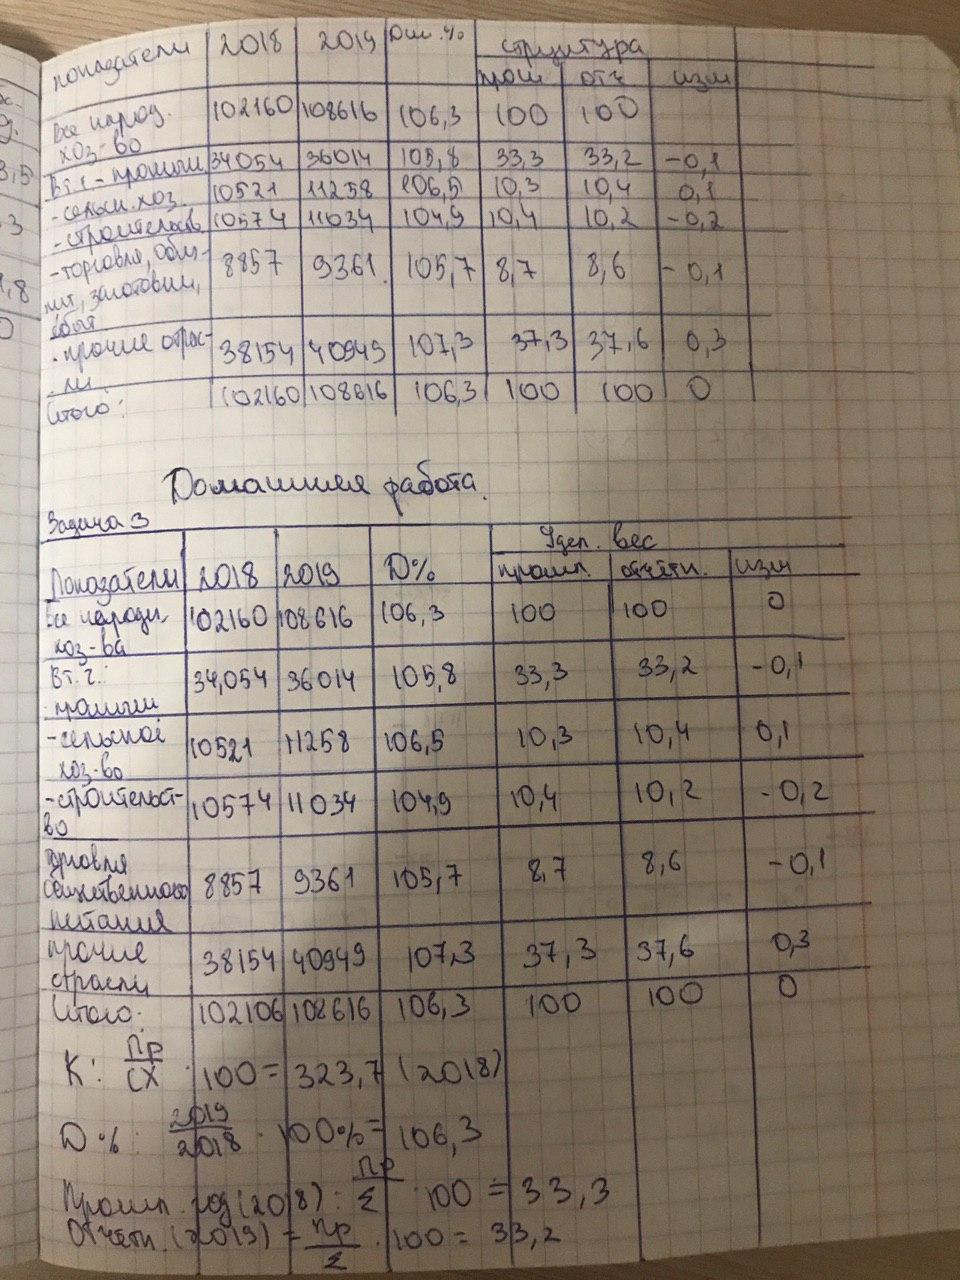 показатели 2018 2019 Дин. % структура
прош отч изм
Все народ. 102160 108616 106,3 100 100
хоз-во
в т.ч - промыш 34054 36014 105,8 33,3 33,2 -0,1
-сельск. хоз. 10521 11258 106,5 10,3 10,4 0,1
-строительств 10574 11034 104,9 10,4 10,2 -0,2
-торговля, общ- 8857 9361 105,7 8,7 8,6 -0,1
пит, заготовки,
сбыт
-прочие отрас- 38154 40949 107,3 37,3 37,6 0,3
ли
Итого: 102160 108616 106,3 100 100 0
Домашняя работа.
Задача 3
Удел. вес
Показатели 2018 2019 D% прошл. отчётн. изм
Все народн. 102160 108616 106,3 100 100 0
хоз-ва
в т.ч.: 34,054 36014 105,8 33,3 33,2 -0,1
промыш
-сельской 10521 11258 106,5 10,3 10,4 0,1
хоз-во
-строительст- 10574 11034 104,9 10,4 10,2 -0,2
во
торговля
общественного 8857 9361 105,7 8,7 8,6 -0,1
питания
прочие 38154 40949 107,3 37,3 37,6 0,3
отрасли
Итого: 102106 108616 106,3 100 100 0
К: Пр/СХ · 100 = 323,7 (2018)
D%: 2019/2018 · 100% = 106,3
Прошл. год (2018): Пр/Σ · 100 = 33,3
Отчётн. (2019) = Пр/Σ · 100 = 33,2